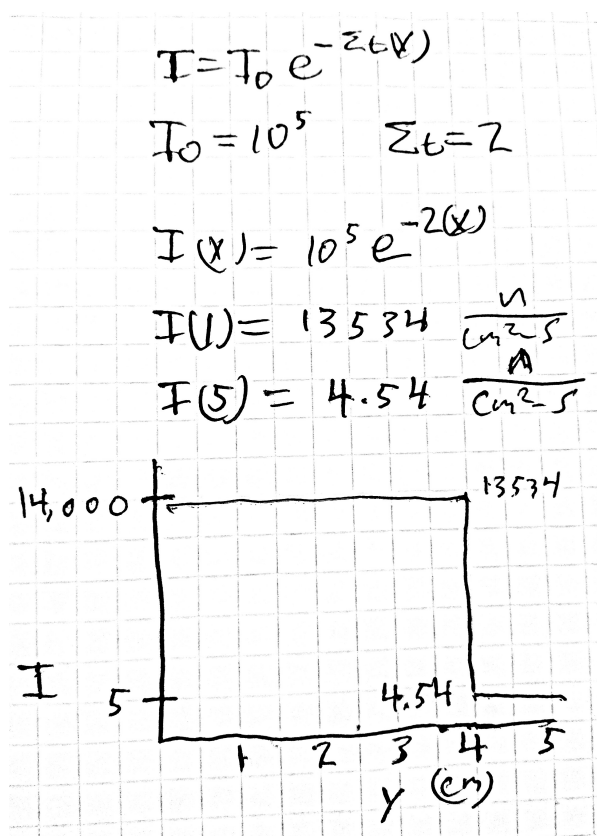 I = I₀ e^-Σt(x)
I₀ = 10⁵ Σt = 2
I(x) = 10⁵ e^-2(x)
I(1) = 13534 n/cm²-s
I(5) = 4.54 n/cm²-s
14,000 13534
I
5 4.54
1 2 3 4 5
y (cm)